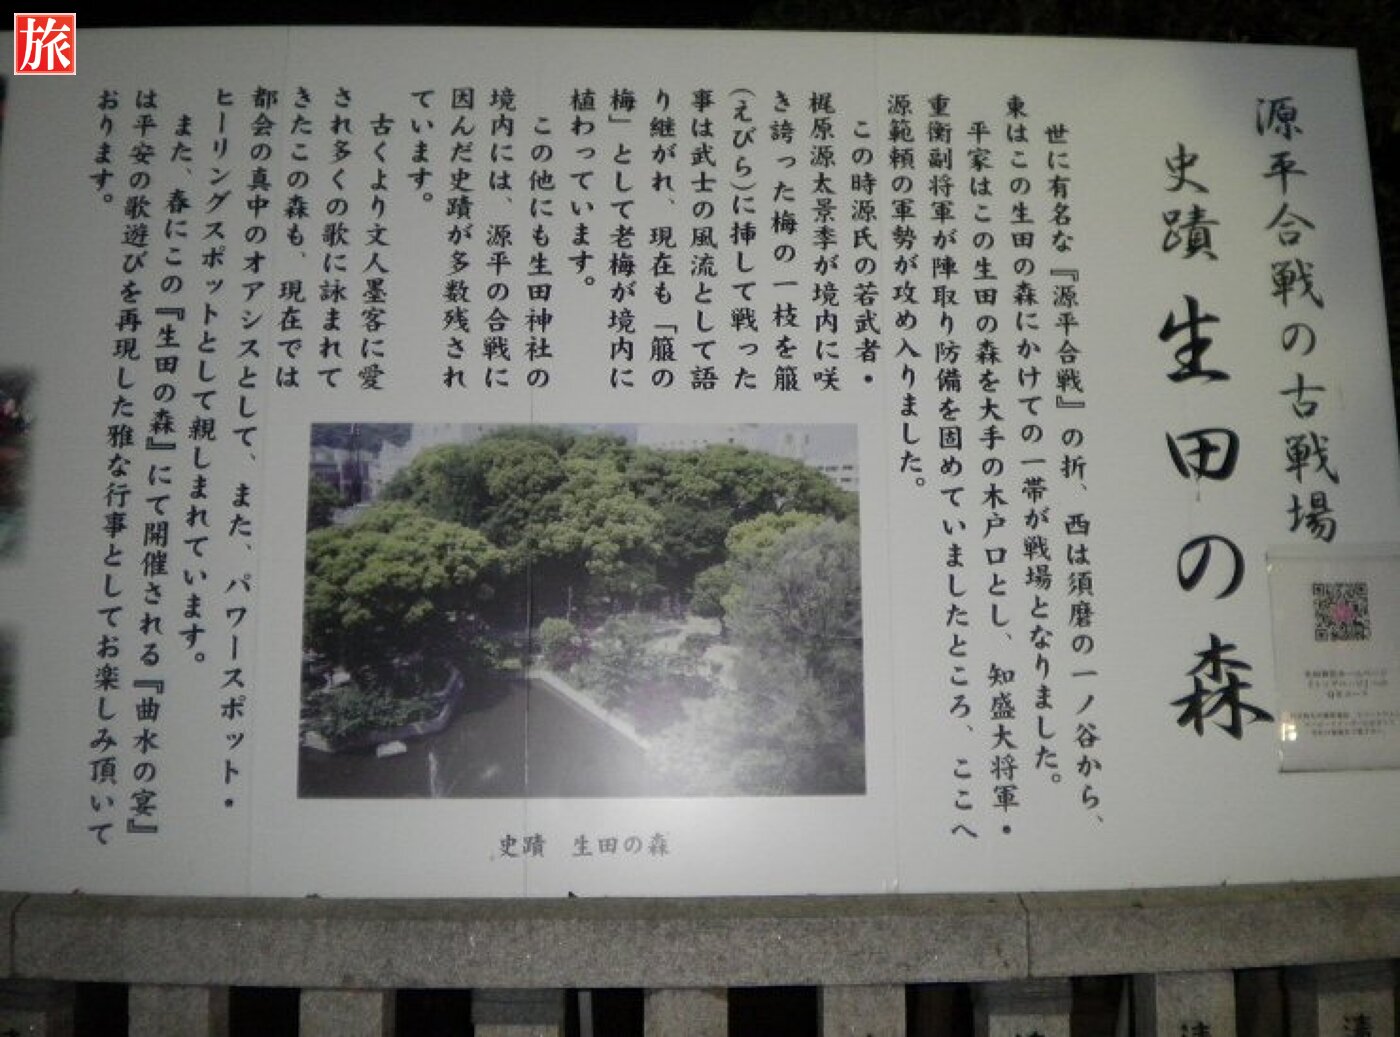 旅
源平合戦の古戦場
史蹟 生田の森
世に有名な『源平合戦』の折、西は須磨の一ノ谷から、
東はこの生田の森にかけての一帯が戦場となりました。
平家はこの生田の森を大手の木戸口とし、知盛大将軍・
重衡副将軍が陣取り防備を固めていましたところ、ここへ
源範頼の軍勢が攻め入りました。
この時源氏の若武者・
梶原源太景季が境内に咲
き誇った梅の一枝を箙
(えびら)に挿して戦った
事は武士の風流として語
り継がれ、現在も「箙の
梅」として老梅が境内に
植わっています。
この他にも生田神社の
境内には、源平の合戦に
因んだ史蹟が多数残され
ています。
古くより文人墨客に愛
され多くの歌に詠まれて
きたこの森も、現在では
都会の真中のオアシスとして、また、パワースポット・
ヒーリングスポットとして親しまれています。
また、春にこの『生田の森』にて開催される『曲水の宴』
は平安の歌遊びを再現した雅な行事としてお楽しみ頂いて
おります。
史蹟 生田の森
清
清